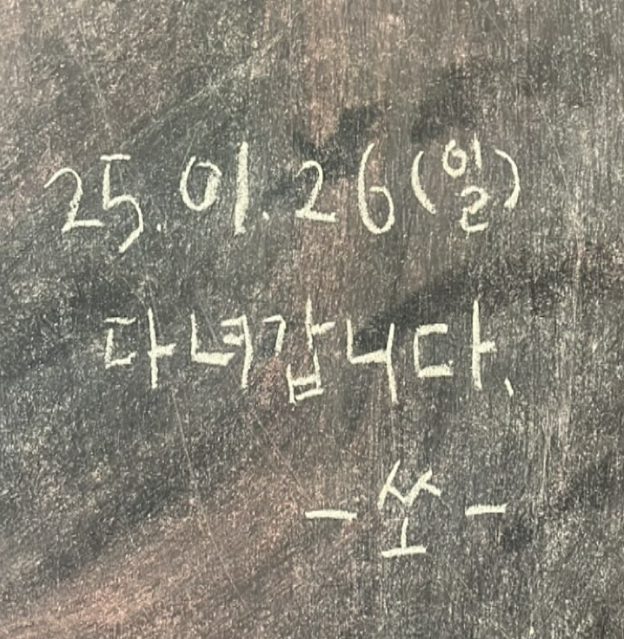 25.01.26(일)
다녀갑니다.
- 쏘 -